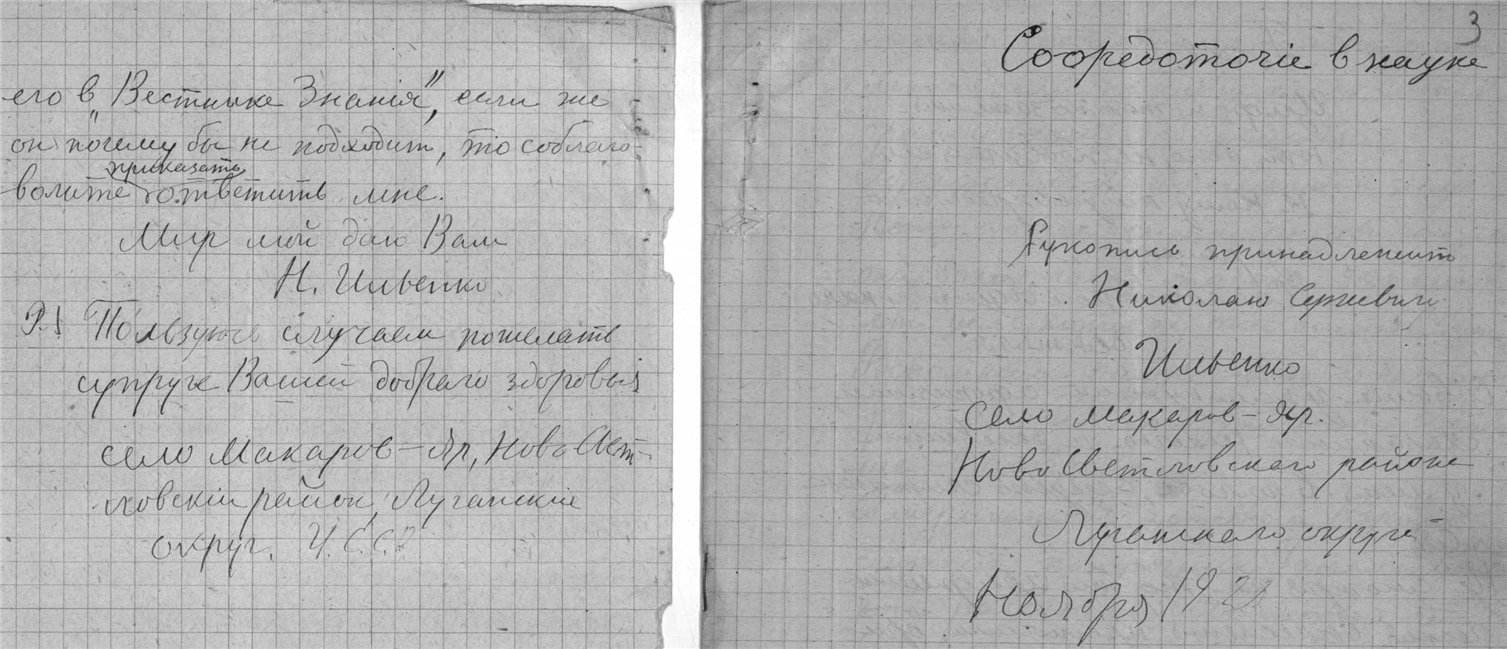 его в "Вестнике Знанія", если же
он почему бы не подходит, то соблаго-
приказать
волите ответить мне.
Мир мой даю Вам
Н. Ильенко
P.S Пользуюсь случаем пожелать
супруге Вашей добраго здоровья
село Макаров-Яр, НовоСвет-
ловскій район, Луганскій
округ. У.С.С.
3
Соредоточіе в науке
Рукопись принадлежит
Николаю
Ильенко
село Макаров-Яр.
НовоСветловскаго района
Луганскаго округа
Ноября